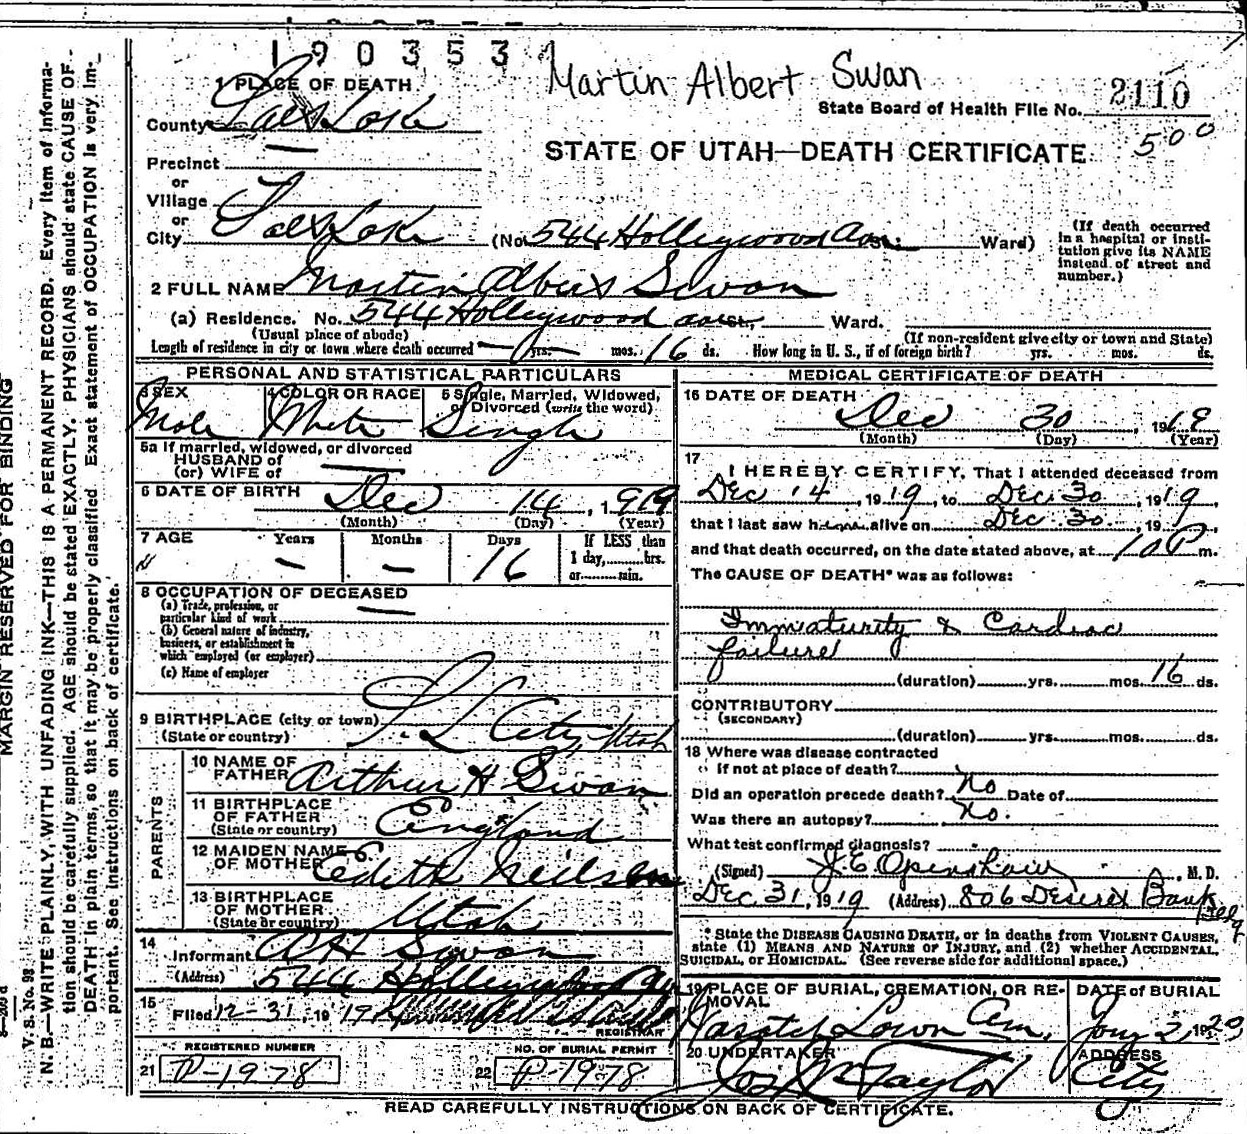 190353
Martin Albert Swan
2110
State Board of Health File No.
500
STATE OF UTAH—DEATH CERTIFICATE
1 PLACE OF DEATH
County Salt Lake
Precinct
or
Village
or
City Salt Lake (No. 544 Holleywood Ave. St.; Ward)
(If death occurred in a hospital or insti-
tution give its NAME
instead of street and
number.)
2 FULL NAME Martin Albert Swan
(a) Residence. No. 544 Holleywood Ave St., Ward.
(Usual place of abode) (If non-resident give city or town and State)
Length of residence in city or town where death occurred — yrs. — mos. 16 ds. How long in U. S., if of foreign birth? yrs. mos. ds.
PERSONAL AND STATISTICAL PARTICULARS
3 SEX 4 COLOR OR RACE 5 Single, Married, Widowed,
or Divorced (write the word)
Male White Single
5a If married, widowed, or divorced
HUSBAND of
(or) WIFE of
6 DATE OF BIRTH Dec 14, 1919
(Month) (Day) (Year)
7 AGE Years Months Days If LESS than
1 day, hrs.
or min.
— — 16
8 OCCUPATION OF DECEASED
(a) Trade, profession, or
particular kind of work
(b) General nature of industry,
business, or establishment in
which employed (or employer)
(c) Name of employer
9 BIRTHPLACE (city or town) S. L. City, Utah
(State or country)
PARENTS
10 NAME OF
FATHER Arthur H Swan
11 BIRTHPLACE
OF FATHER England
(State or country)
12 MAIDEN NAME
OF MOTHER Edith Neilsen
13 BIRTHPLACE
OF MOTHER Utah
(State or country)
14
Informant A H Swan
(Address) 544 Holleywood Av
15
Filed 12-31, 1919
REGISTRAR
REGISTERED NUMBER NO. OF BURIAL PERMIT
21 P-1978 22 P-1978
MEDICAL CERTIFICATE OF DEATH
16 DATE OF DEATH
Dec 30, 1919
(Month) (Day) (Year)
17
I HEREBY CERTIFY, That I attended deceased from
Dec 14, 1919, to Dec 30, 1919,
that I last saw him alive on Dec 30, 191 ,
and that death occurred, on the date stated above, at 10 P m.
The CAUSE OF DEATH* was as follows:
Immaturity & Cardiac
failure
(duration) yrs. mos. 16 ds.
CONTRIBUTORY
(SECONDARY)
(duration) yrs. mos. ds.
18 Where was disease contracted
if not at place of death?
Did an operation precede death? No Date of
Was there an autopsy? No.
What test confirmed diagnosis?
(Signed) J. E. Openshaw, M. D.
Dec 31, 1919 (Address) 806 Deseret Bank Bldg
* State the DISEASE CAUSING DEATH, or in deaths from VIOLENT CAUSES,
state (1) MEANS AND NATURE OF INJURY, and (2) whether ACCIDENTAL,
SUICIDAL, or HOMICIDAL. (See reverse side for additional space.)
19 PLACE OF BURIAL, CREMATION, OR RE-
MOVAL DATE of BURIAL
Wasatch Lawn Cem. Jan 2, 1920
20 UNDERTAKER ADDRESS
Jos Wm Taylor City
READ CAREFULLY INSTRUCTIONS ON BACK OF CERTIFICATE.
MARGIN RESERVED FOR BINDING
V. S. No. 98
N. B.—WRITE PLAINLY, WITH UNFADING INK—THIS IS A PERMANENT RECORD. Every item of informa-
tion should be carefully supplied. AGE should be stated EXACTLY. PHYSICIANS should state CAUSE OF
DEATH in plain terms, so that it may be properly classified. Exact statement of OCCUPATION is very im-
portant. See instructions on back of certificate.